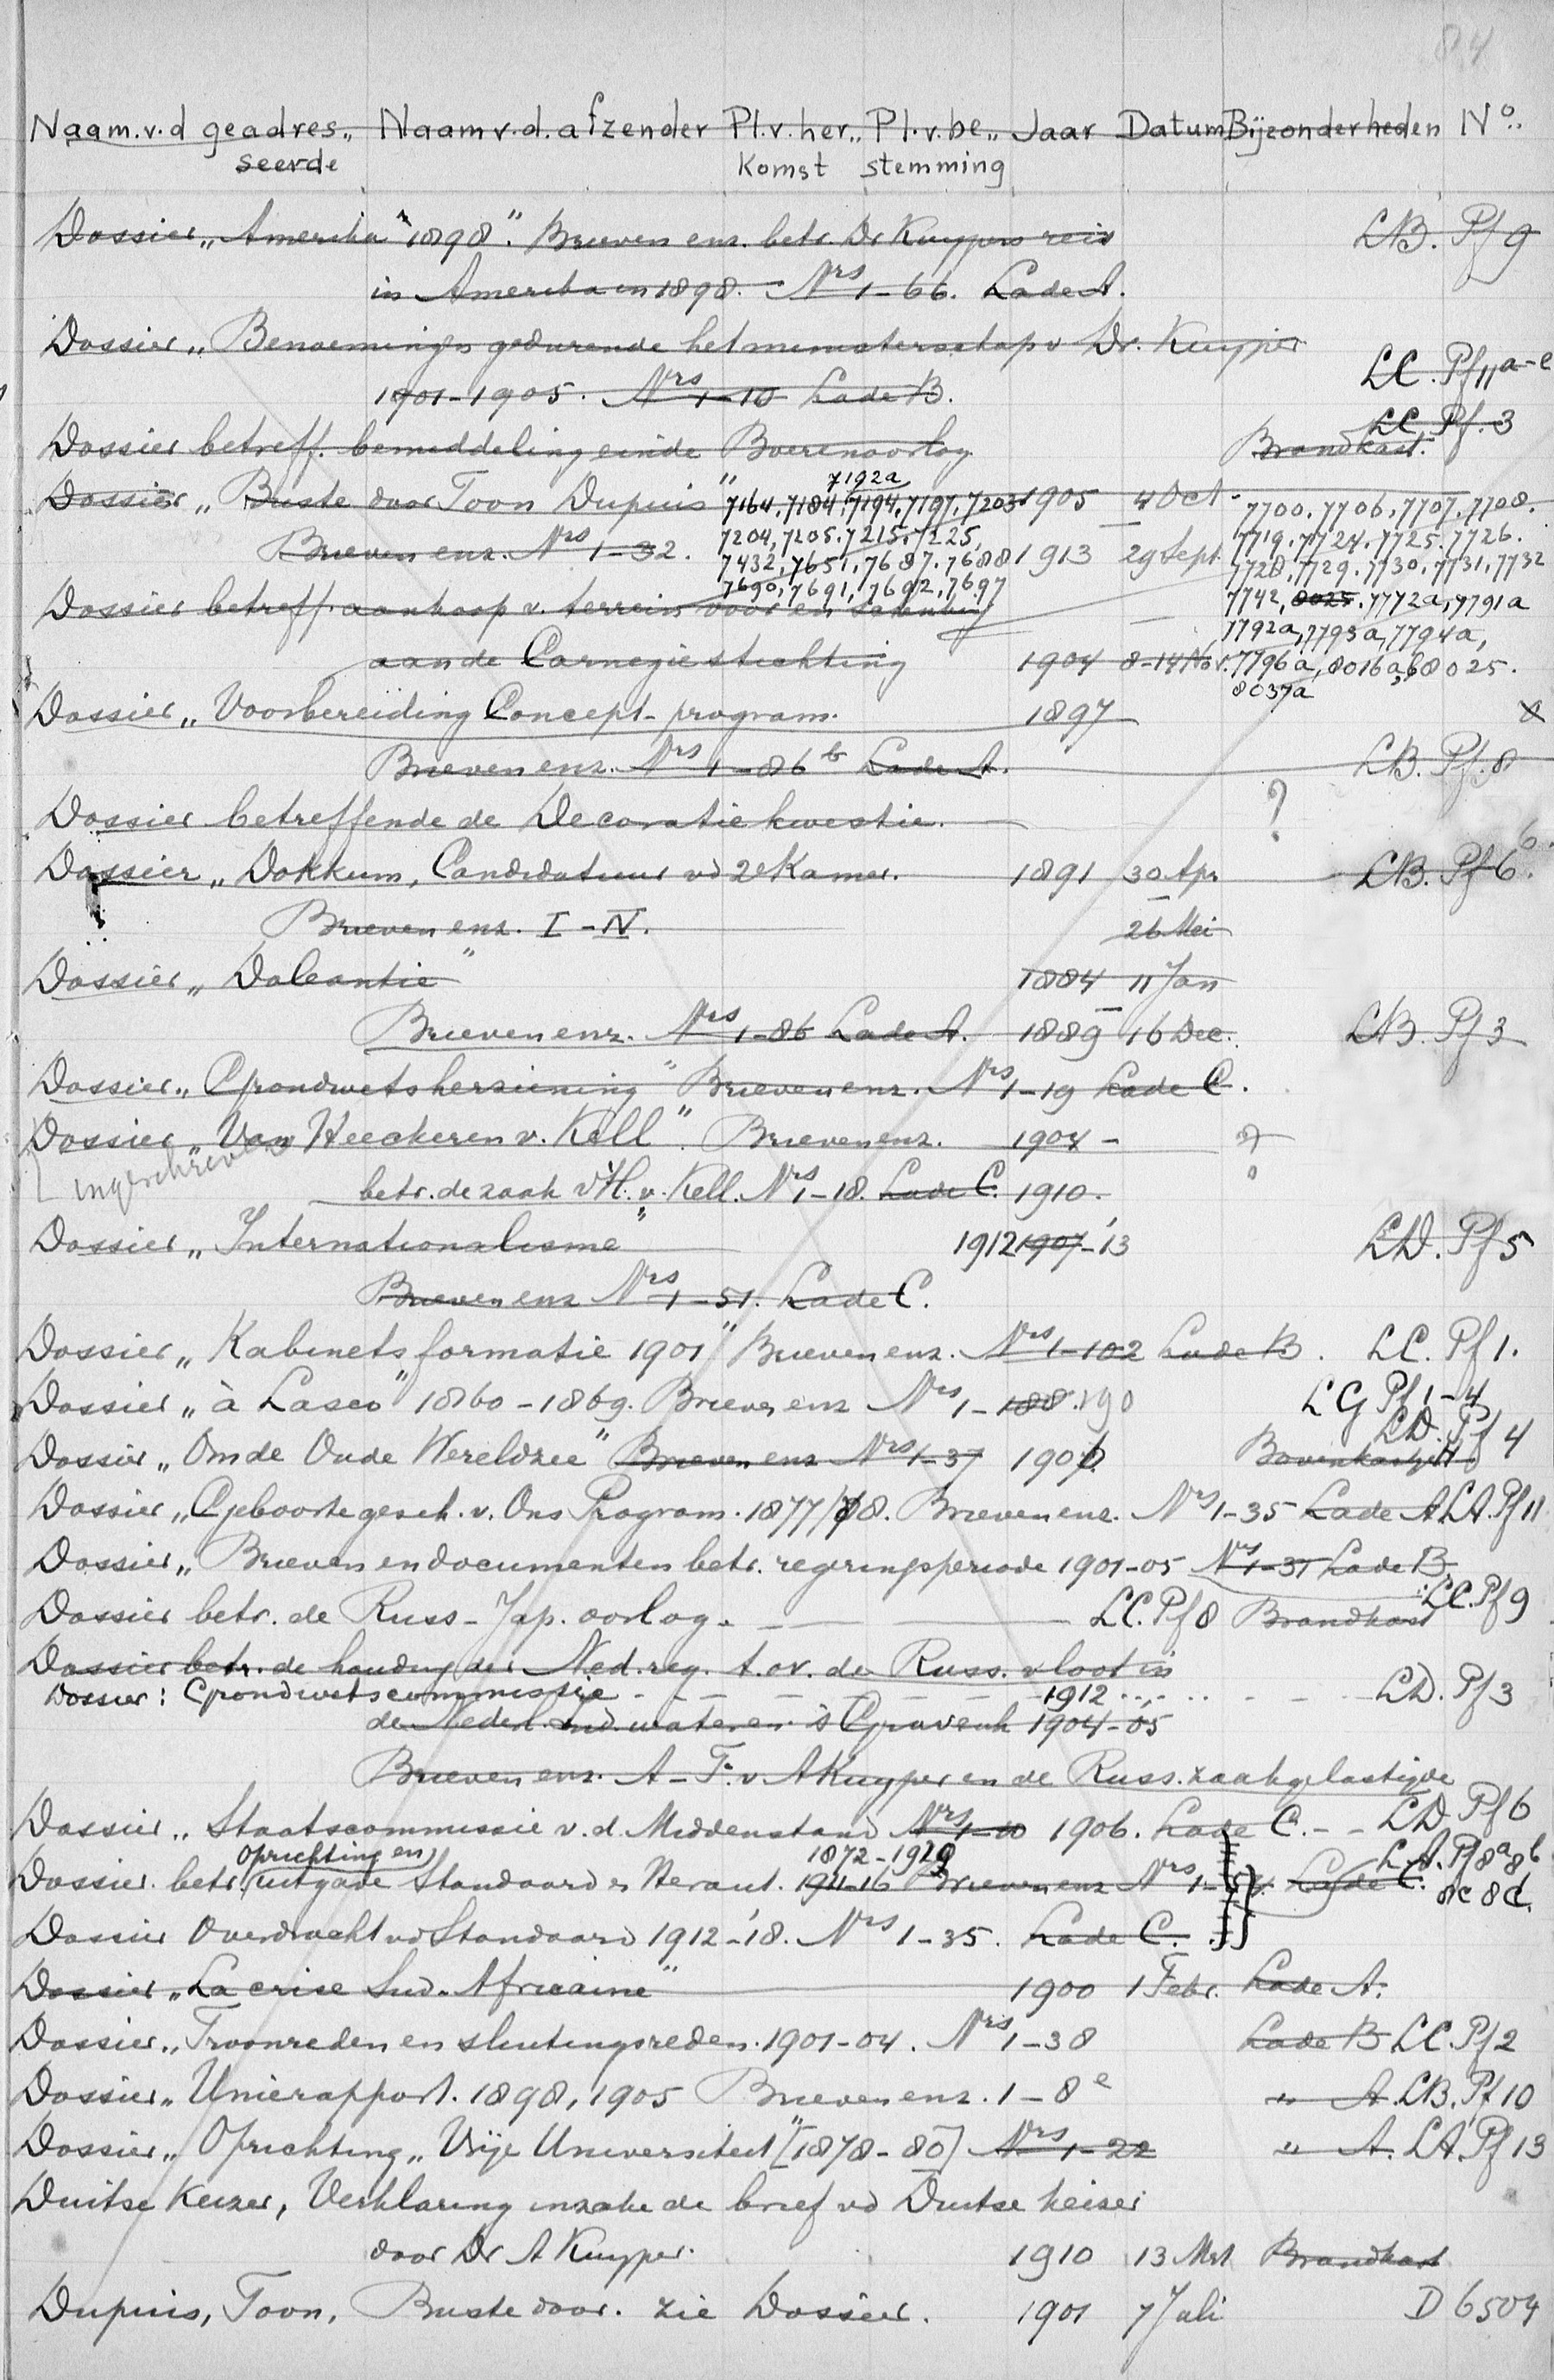 84
Naam.v.d geadres„ Naam v.d. afzender Pl.v.her„ Pl.v.be„ Jaar Datum Bijzonderheden No.
seerde komst stemming
Dossier „Amerika 1898". Brieven enz. betr. Dr Kuypers reis LB. Pf 9
in Amerika in 1898. Nrs 1-66. Lade A.
Dossier „Benoemingen gedurende het ministerschap v Dr. Kuyper
1901-1905. Nrs 1-10 Lade B. LC. Pf 11 a-e
LC. Pf. 3
Dossier betreff. bemiddeling einde Boerenoorlog Brandkast.
7192a
Dossier „Buste door Toon Dupuis" 7164, 7184, 7194, 7197, 7203 1905 4 Oct - 7700, 7706, 7707, 7708.
Brieven enz. Nrs 1-32. 7204, 7205, 7215, 7225, 7719, 7724, 7725, 7726.
7432, 7651, 7687, 7688 1913 29 Sept. 7728, 7729, 7730, 7731, 7732
7690, 7691, 7692, 7697
Dossier betreff. aankoop v. terrein voor en schenking 7742, 8025, 7772a, 7791a
7792a, 7793a, 7794a,
aan de Carnegiestichting 1904 8-14 Nov. 7796a, 8016a,b 8025.
8037a
Dossier „Voorbereiding Concept-program. 1897 8
Brieven enz. Nrs 1-86b Lade A. LB. Pf. 8
Dossier betreffende de Decoratiekwestie. ?
Dossier „Dokkum, Candidatuur vd 2e Kamer. 1891 30 Apr LB. Pf 6
Brieven enz. I-IV. 26 Mei
Dossier „Doleantie" 1884 11 Jan
Brieven enz. Nrs 1-86 Lade A. 1889 16 Dec. LB. Pf 3
Dossier „Grondwetsherziening" Brieven enz. Nrs 1-19 Lade C.
Dossier „Van Heeckeren v. Kell". Brieven enz. 1904 - ?
ingeschreven
betr. de zaak v H. v. Kell. Nrs 1-18. Lade C. 1910.
Dossier „Internationalisme" 1912 1907-'13 LD. Pf 5
Brieven enz Nrs 1-51. Lade C.
Dossier „Kabinetsformatie 1901" Brieven enz. Nrs 1-102 Lade B. LC. Pf 1.
Dossier „à Lasco" 1860-1869. Brieven enz Nrs 1-188 190 LG Pf 1-4
LD. Pf 4
Dossier „Om de Oude Wereldzee" Brieven enz Nrs 1-37 1906
Dossier „Geboortegesch. v. Ons Program. 1877/78. Brieven enz. Nrs 1-35 Lade A LA. Pf 11
Dossier „Brieven en documenten betr. regeringsperiode 1901-05 Nrs 1-37 Lade B.
LC. Pf 9
Dossier betr. de Russ-Jap. oorlog. LC. Pf 8 Brandkast
Dossier betr. de houding der Ned. reg. t.ov. de Russ. vloot in
Dossier: Grondwetscommissie 1912 LD. Pf 3
de Nederl. Ind wateren 's Gravenh 1904-05
Brieven enz. A-F. v A Kuyper en de Russ. zaakgelastigde
Dossier „Staatscommissie v. d. Middenstand Nrs 1-10 1906. Lade C. - - LD. Pf 6
oprichting en 1872-1929 LA. Pf 8a 8b
Dossier betr. uitgave Standaard en Heraut. 1911-16 Brieven enz Nrs 1- Lade C. 8c 8d.
Dossier Overdracht vd Standaard 1912-'18. Nrs 1-35. Lade C.
Dossier „La crise Sud-Africaine" 1900 1 Febr. Lade A.
Dossier „Troonreden en sluitingsreden. 1901-04. Nrs 1-38 Lade B LC. Pf 2
Dossier „Unierapport. 1898, 1905 Brieven enz. 1-8e „ A. LB. Pf 10
Dossier „Oprichting „Vrije Universiteit" [1878-80] Nrs 1-22 „ A. LA. Pf 13
Duitse Keizer, Verklaring inzake de brief vd Duitse keizer
door Dr A Kuyper. 1910 13 Mrt Brandkast
Dupuis, Toon, Buste door. zie Dossier. 1901 7 Juli D 6504